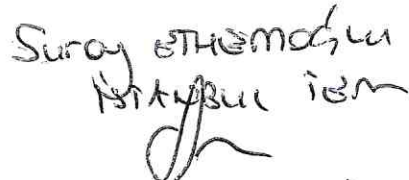 Suray ETHEMOĞLU
İSTANBUL İEM